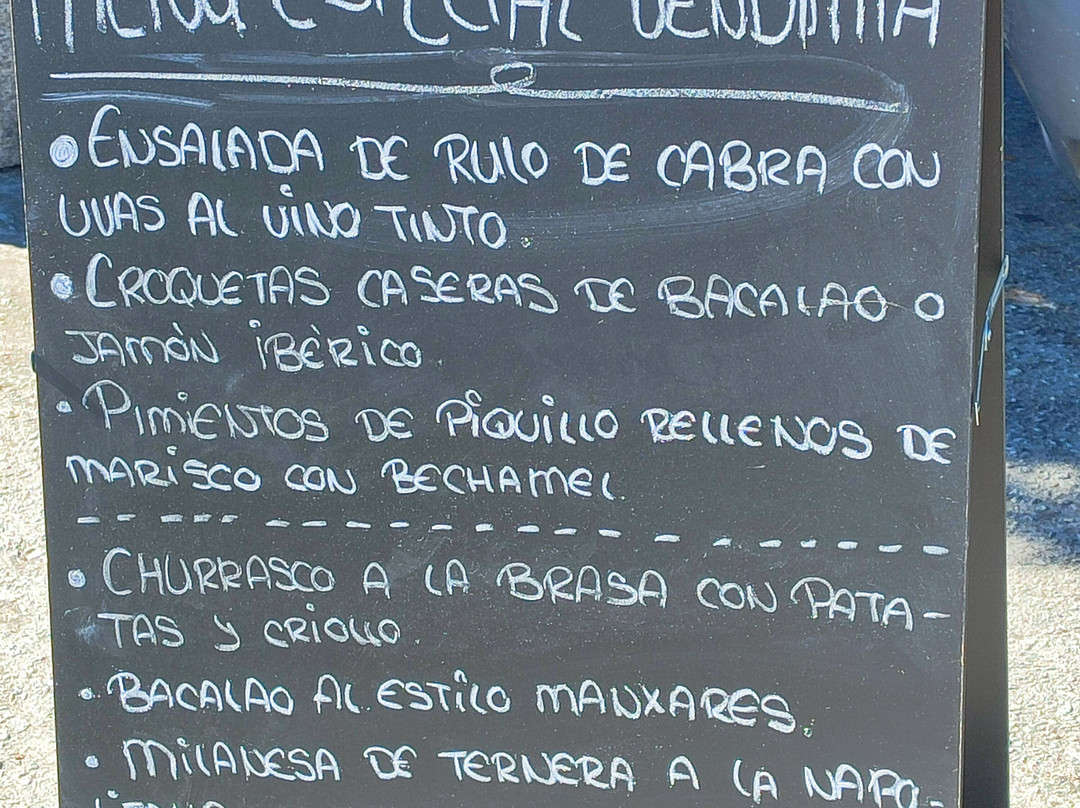 MENÚ ESPECIAL VENDIMIA
• ENSALADA DE RULO DE CABRA CON
UVAS AL VINO TINTO.
• CROQUETAS CASERAS DE BACALAO O
JAMÓN IBÉRICO.
• PIMIENTOS DE PIQUILLO RELLENOS DE
MARISCO CON BECHAMEL.
• CHURRASCO A LA BRASA CON PATA-
TAS Y CRIOLLO.
• BACALAO AL ESTILO MANXARES.
• MILANESA DE TERNERA A LA NAPO-
LITANA